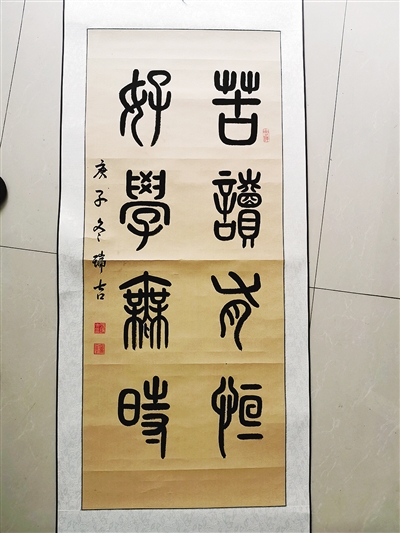 苦讀有恒
好學無時
庚子冬瑞吉